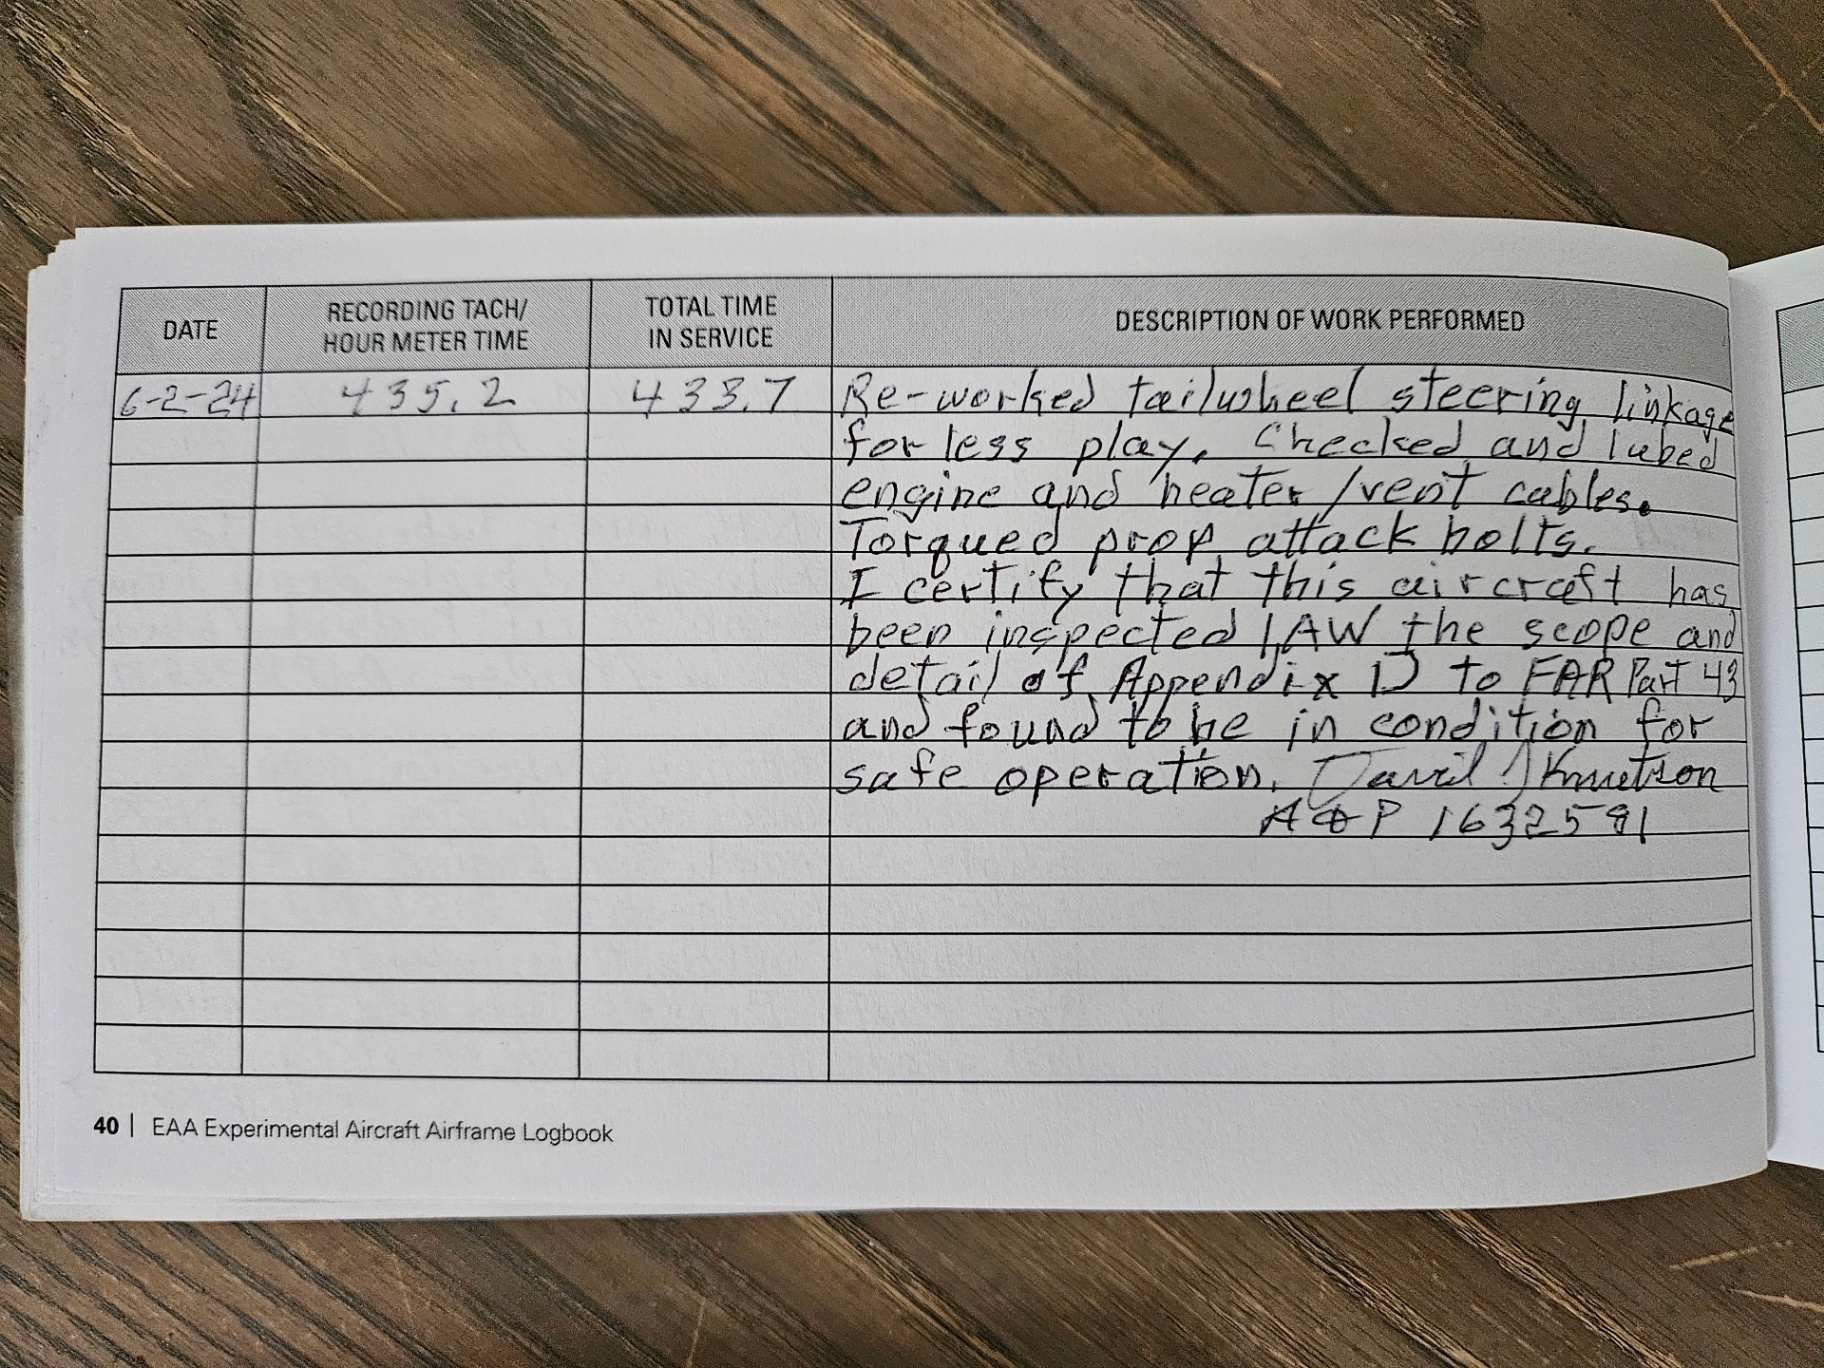 DATE
RECORDING TACH/
HOUR METER TIME
TOTAL TIME
IN SERVICE
DESCRIPTION OF WORK PERFORMED
6-2-24 435.2 433.7 Re-worked tailwheel steering linkage
for less play. Checked and lubed
engine and heater/vent cables.
Torqued prop attack bolts.
I certify that this aircraft has
been inspected IAW the scope and
detail of Appendix D to FAR Part 43
and found to be in condition for
safe operation. David J Knutson
A&P 1632591
40 | EAA Experimental Aircraft Airframe Logbook